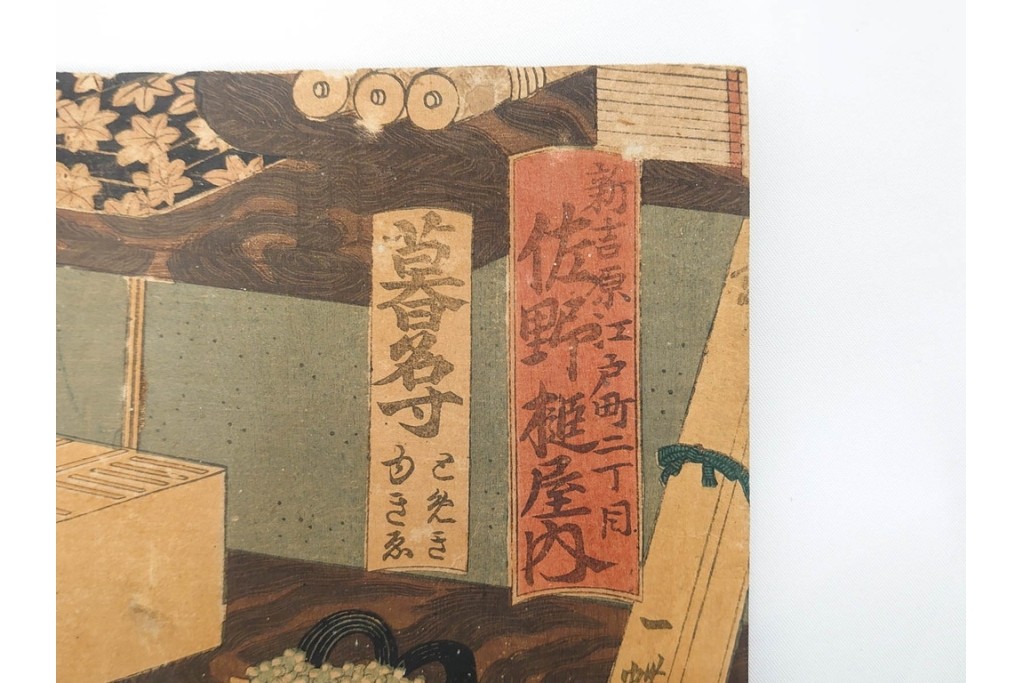 新吉原江戸町二丁目
佐野槌屋内
暮名寸
とめき
一